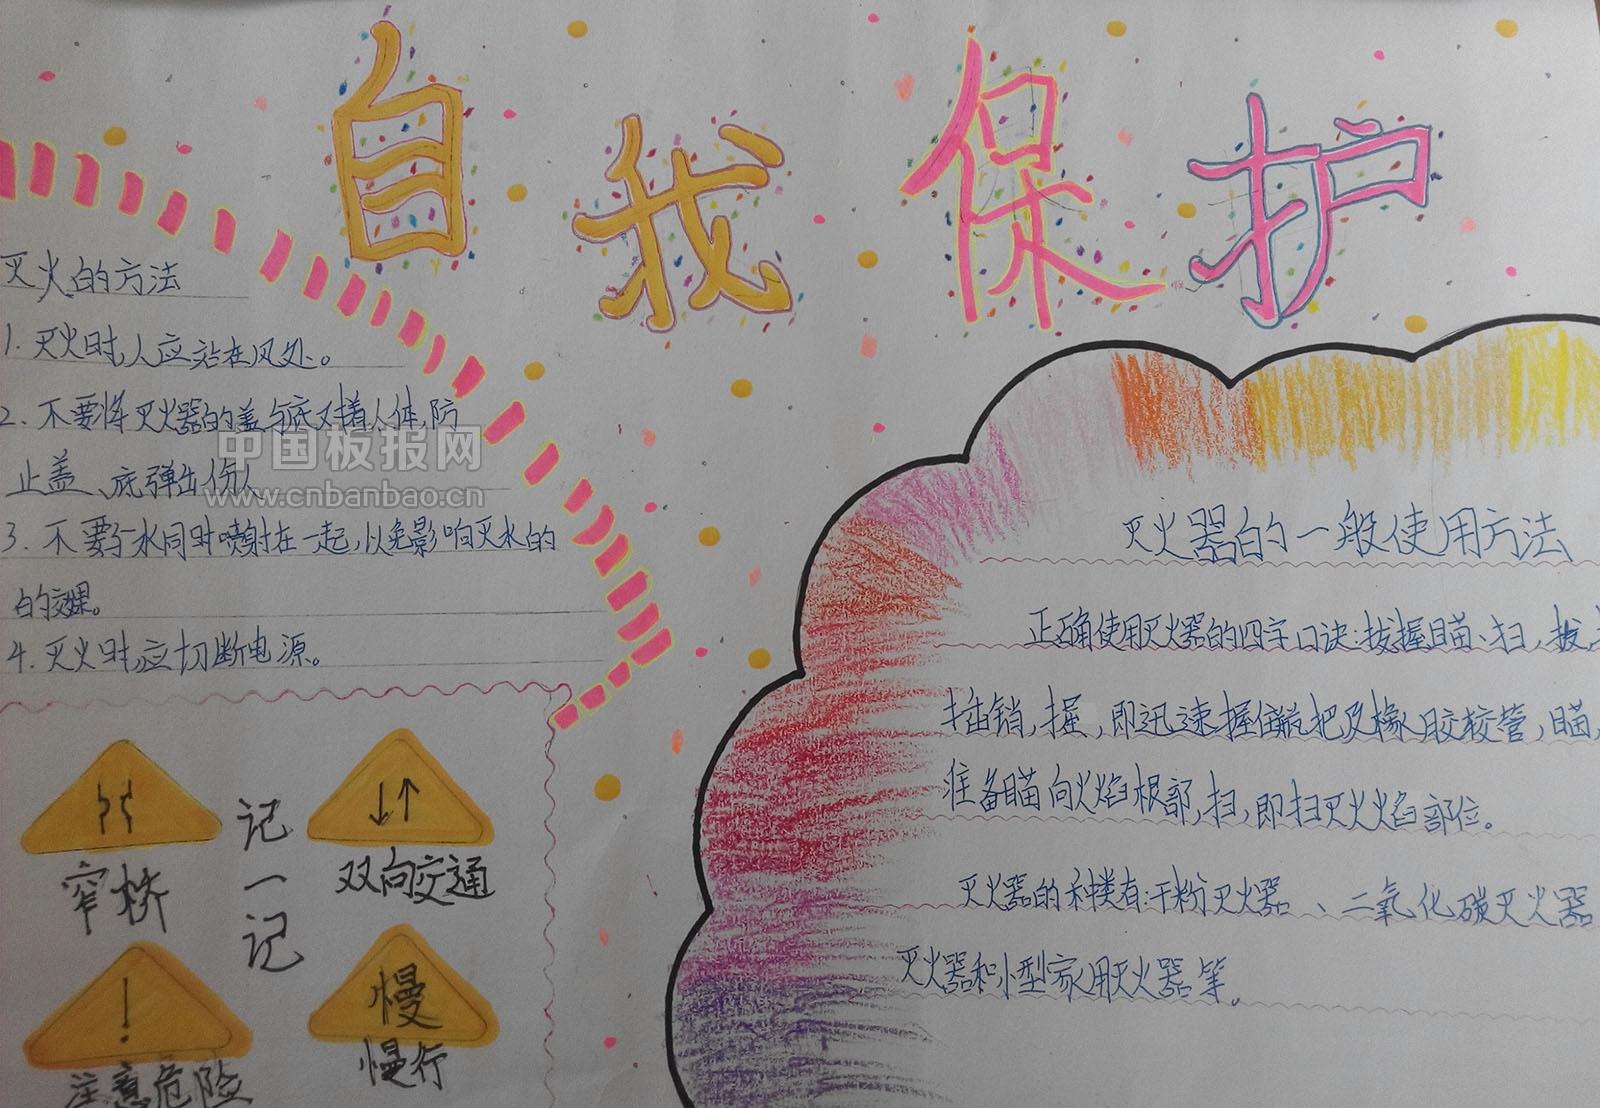 自我保护
灭火的方法
1.灭火时,人应站在风处。
2.不要将灭火器的盖与底对着人体,防
止盖、底弹出伤人
3.不要与水同时喷射在一起,以免影响灭火的
的效果。
4.灭火时,应切断电源。
中国板报网
www.cnbanbao.cn
窄桥
记一记
双向交通
注意危险
慢
慢行
灭火器的一般使用方法
正确使用灭火器的四字口诀:拔握瞄、扫,拔
插销,握,即迅速握住瓶把及橡胶软管,瞄,
准备瞄向火焰根部,扫,即扫灭火火焰部位。
灭火器的种类有:干粉灭火器、二氧化碳灭火器
灭火器和小型家用灭火器等。